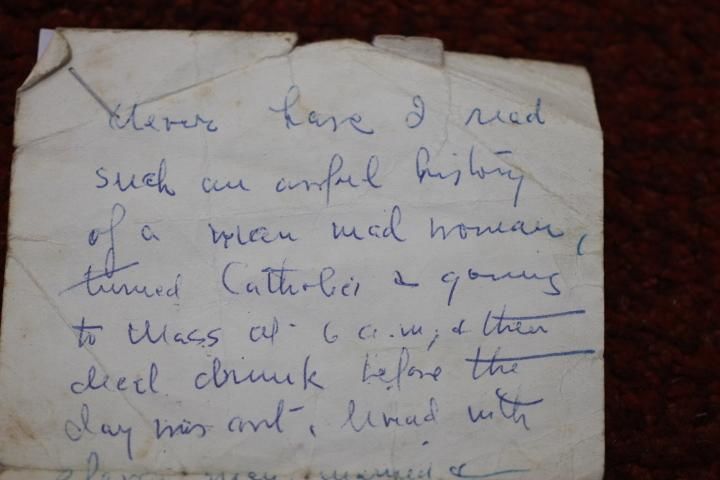 Never have I read
such an awful history
of a mean mad woman,
turned Catholic & going
to Mass at 6 a.m, & then
dead drunk before the
day was out. Lived with
men, married &